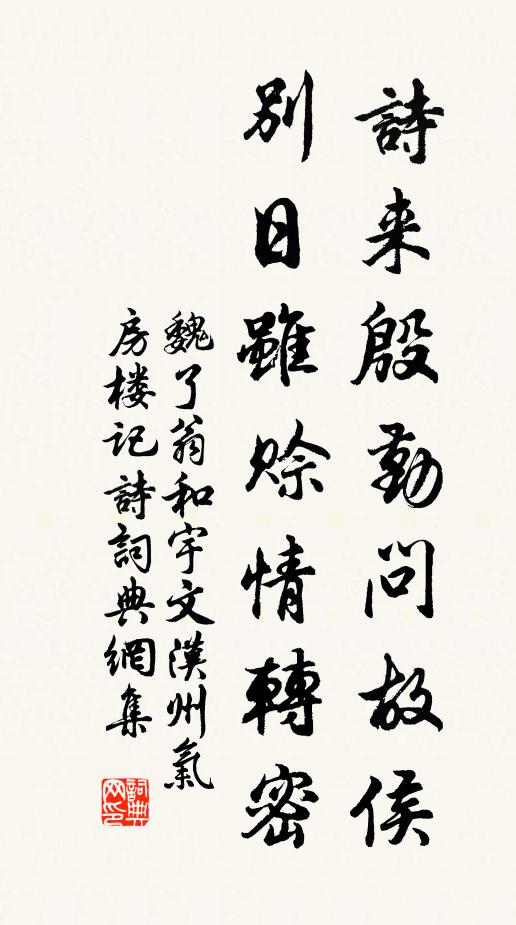 詩来殷勤問故侯
別日雖賒情轉密
魏了翁和宇文漢州氣
房楼記詩詞典網集
詞典网印